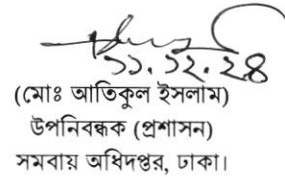 ১১.১২.২৪
(মোঃ আতিকুল ইসলাম)
উপনিবন্ধক (প্রশাসন)
সমবায় অধিদপ্তর, ঢাকা।